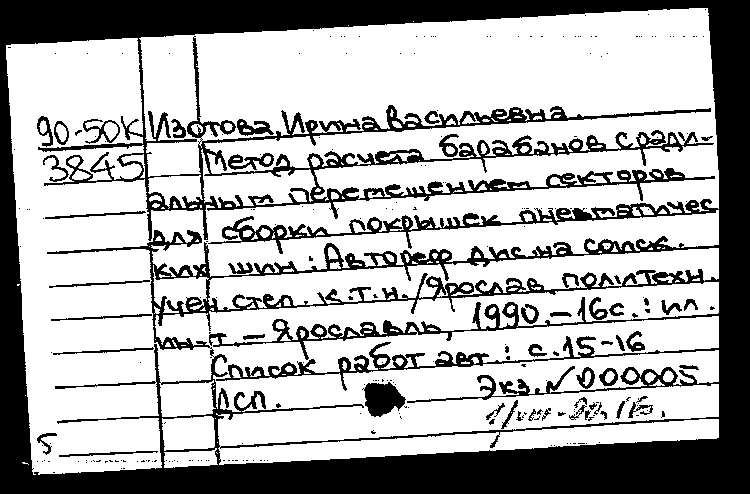 90-50К Изотова, Ирина Васильевна.
3845 Метод расчета барабанов с ради-
альным перемещением секторов
для сборки покрышек пневматичес
ких шин : Автореф. дис. на соиск.
учен. степ. к.т.н. / Ярослав. политехн.
ин-т. — Ярославль, 1990. — 16с. : ил.
Список работ авт. : с. 15-16
ДСП. Экз. № 000005
5